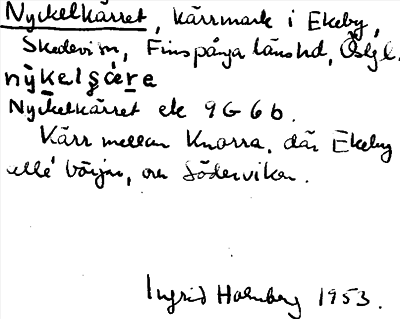 Nyckelkärret, kärrmark i Ekeby,
Skedevi sn, Finspånga länshd, Östgl.
nỳkelçære
Nyckelkärret ek 9G 6b.
Kärr mellan Knorra, där Ekeby
allé börjar, o Söderviken.
Ingrid Holmberg 1953.